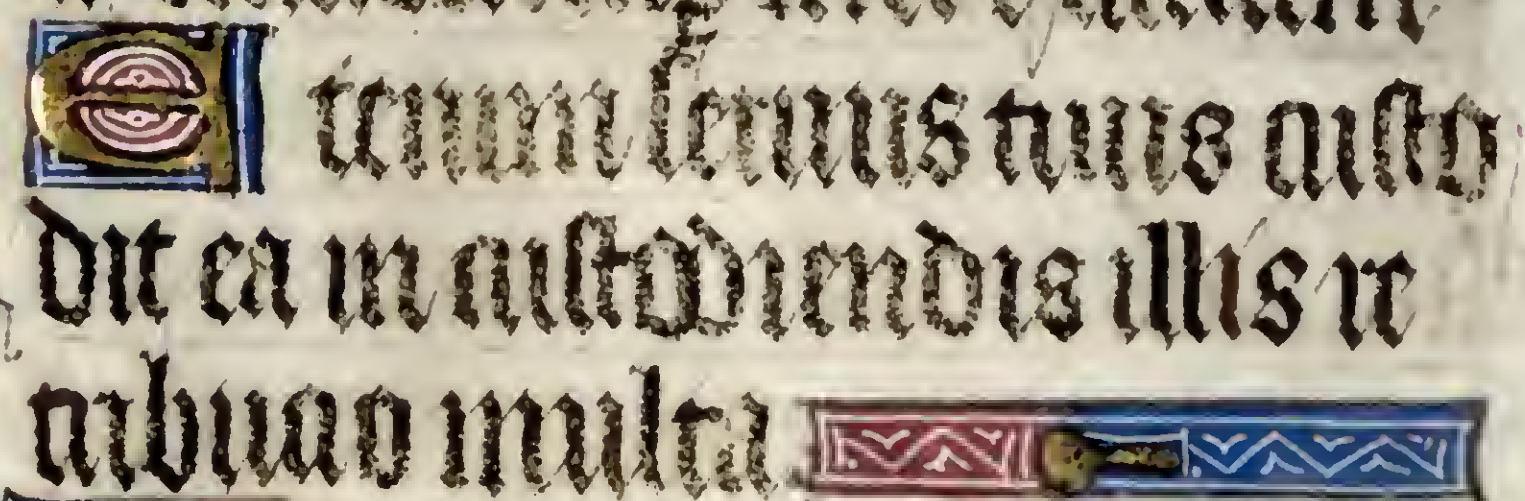 Etenim seruus tuus custo
dit ea in custodiendis illis re
tribucio multa